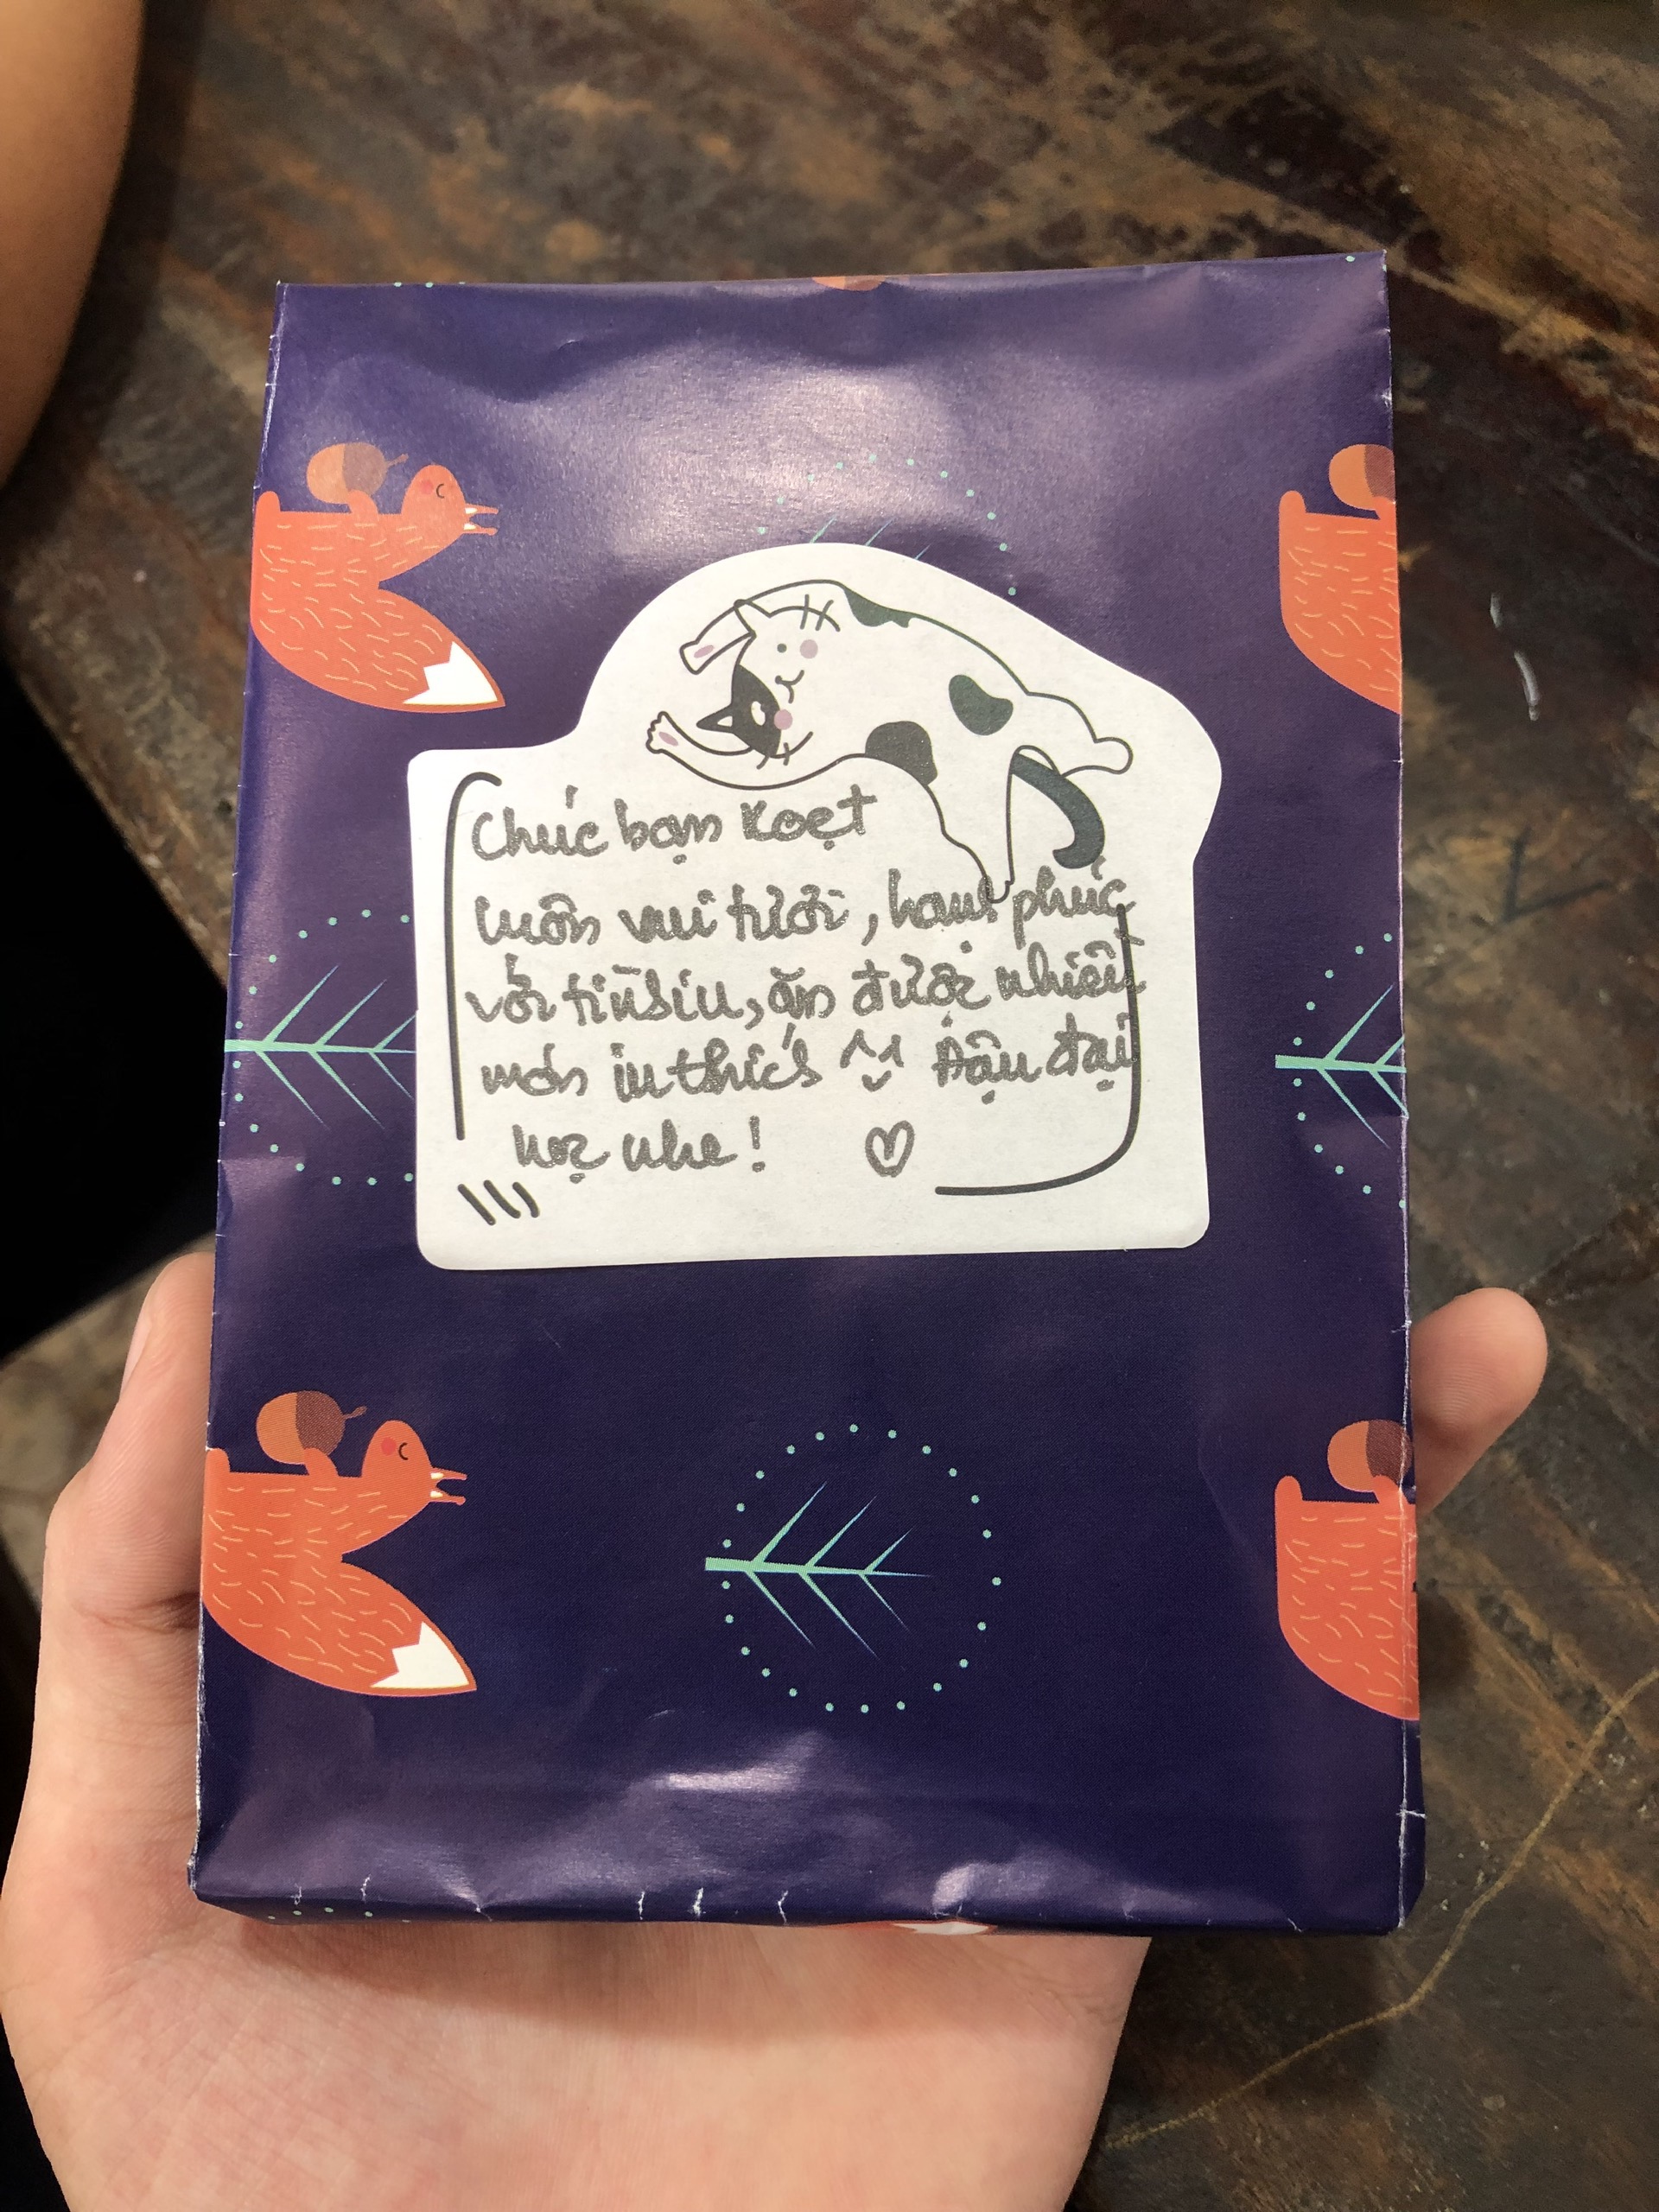 Chúc bạn Koẹt
luôn vui tươi, hạnh phúc
với tiùliu, ăn được nhiều
món iu thích ^^ Đậu đại
học nhe! ♡